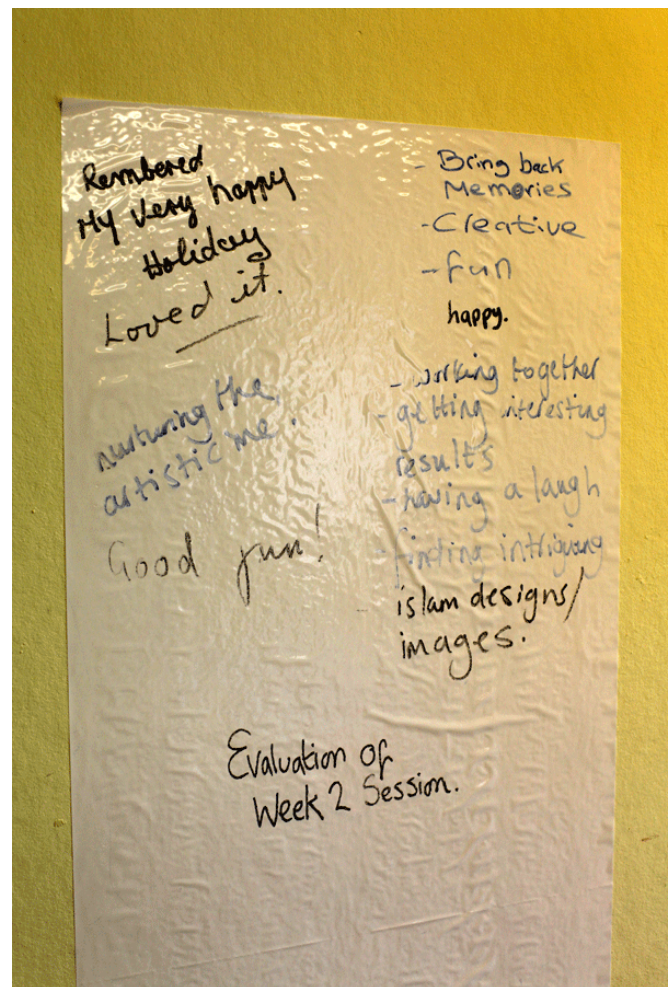 Rembered
My Very happy
Holiday
Loved it.
nurturing the
artistic me.
Good fun!
- Bring back
Memories
- Creative
- fun
happy.
- working together
- getting interesting
results
- having a laugh
- finding intriguing
islam designs/
images.
Evaluation of
Week 2 Session.